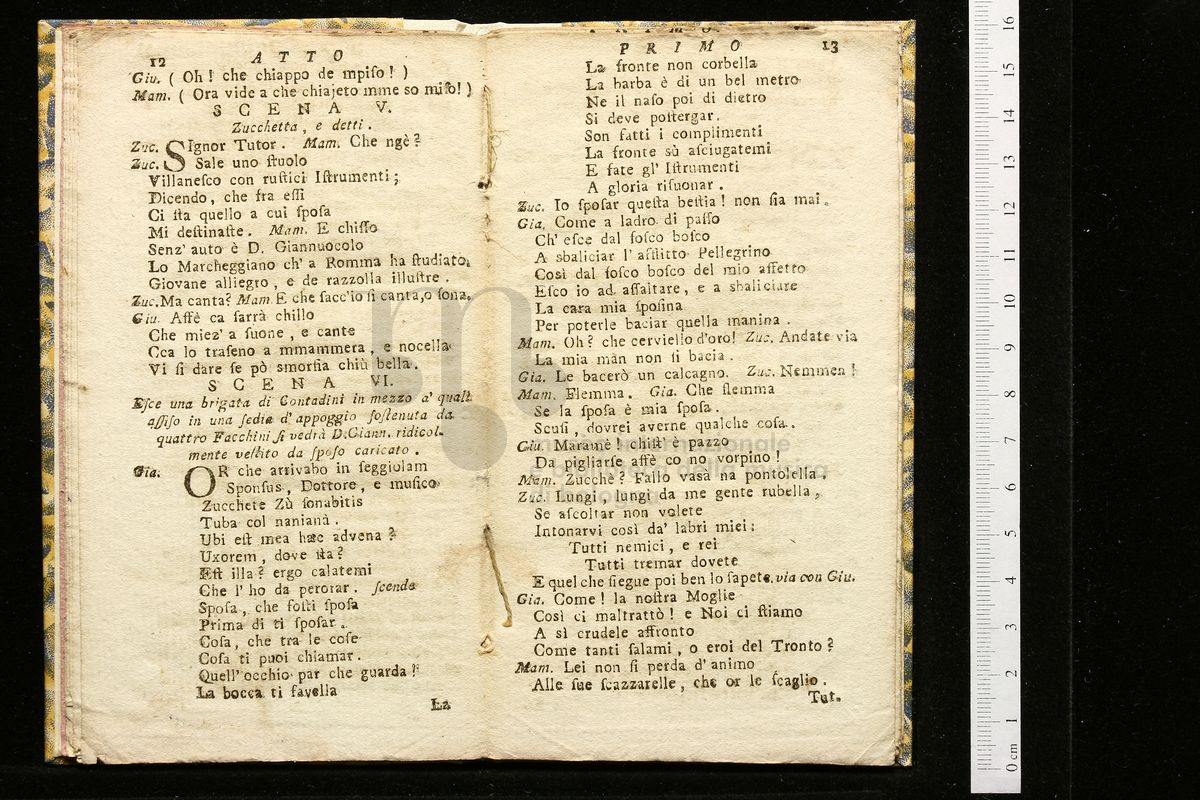 12 ATTO
Giu. ( Oh ! che chiappo de mpiſo ! )
Mam. ( Ora vide a che chiajeto mme so miſo! )
SCENA V.
Zucchetta, e detti.
Zuc. SIgnor Tutor. Mam. Che ngè?
Zuc. Sale uno ſtuolo
Villaneſco con ruſtici Iſtrumenti;
Dicendo, che fra eſſi
Ci ſta quello a cui ſpoſa
Mi deſtinaſte. Mam. E chiſſo
Senz' auto è D. Giannuocolo
Lo Marcheggiano ch' a Romma ha ſtudiato,
Giovane alliegro, e de razzolla illuſtre.
Zuc. Ma canta? Mam. E che ſacc'io ſi canta,o ſona.
Giu. Affè ca ſarrà chillo
Che miez' a ſuone, e cante
Cca lo traſeno a mmammera, e nocella
Vi ſi dare ſe pò smorfia chiù bella.
SCENA VI.
Eſce una brigata di Contadini in mezzo a' quali
aſſiſo in una ſedia d' appoggio ſoſtenuta da
quattro Facchini ſi vedrà D.Giann. ridicol-
mente veſtito da ſpoſo caricato.
Gia. OR che arrivabo in ſeggiolam
Sponſus, Dottore, e muſico
Zucchete Zù ſonabitis
Tuba col nanianà.
Ubi eſt mea hæc advena?
Uxorem, dove ſta?
Eſt illa? ergo calatemi
Che l' ho da perorar. ſcende
Spoſa, che foſti ſpoſa
Prima di ti ſpoſar.
Coſa, che tra le coſe
Coſa ti puoi chiamar.
Quell' occhio par che guarda!
La bocca ti favella
La
PRIMO 13
La fronte non corbella
La barba è di un bel metro
Ne il naſo poi di dietro
Si deve poſtergar.
Son fatti i complimenti
La fronte sù aſciugatemi
E fate gl' Iſtrumenti
A gloria riſuonar.
Zuc. Io ſpoſar queſta beſtia! non ſia mai.
Gia. Come a ladro di paſſo
Ch' eſce dal foſco boſco
A sbaliciar l' afflitto Pellegrino
Così dal foſco boſco del mio affetto
Eſco io ad aſſaltare, e a sbaliciare
La cara mia ſpoſina
Per poterle baciar quella manina.
Mam. Oh? che cerviello d'oro! Zuc. Andate via
La mia man non ſi bacia.
Gia. Le bacerò un calcagno. Zuc. Nemmen!
Mam. Flemma. Gia. Che flemma
Se la ſpoſa è mia ſpoſa.
Scuſi, dovrei averne qualche coſa.
Giu. Maramè! chiſt' è pazzo
Da pigliarſe affè co no vorpino!
Mam. Zucchè? Fallo vasà na pontolella.
Zuc. Lungi, lungi da me gente rubella,
Se aſcoltar non volete
Intonarvi così da' labri miei:
Tutti nemici, e rei
Tutti tremar dovete
E quel che ſiegue poi ben lo ſapete. via con Giu.
Gia. Come! la noſtra Moglie
Così ci maltrattò! e Noi ci ſtiamo
A sì crudele affronto
Come tanti ſalami, o eroi del Tronto?
Mam. Lei non ſi perda d' animo
Alle ſue ſcazzarelle, che or le ſcaglio.
Tut.
0 cm 1 2 3 4 5 6 7 8 9 10 11 12 13 14 15 16